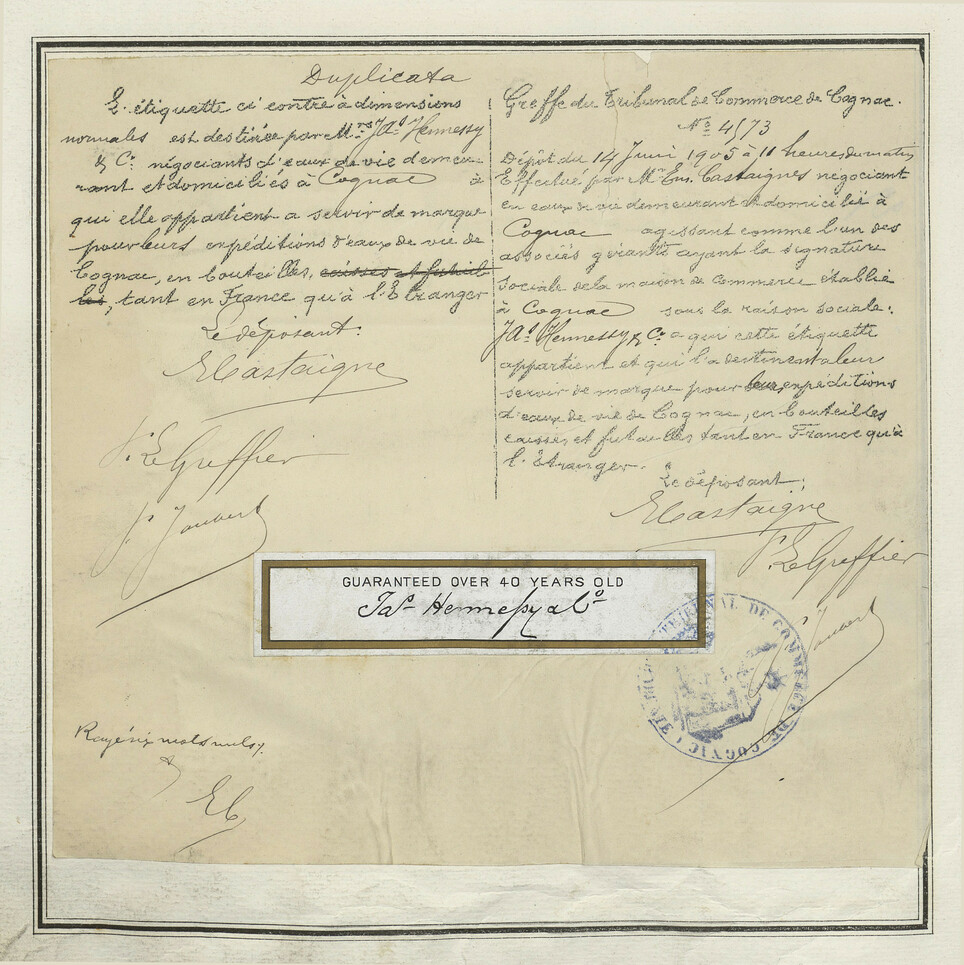 Duplicata
L'étiquette ci contre à dimensions
normales est destinée par Mrs Jas Hennessy
& Co négociants d'eaux de vie demeu-
rant et domiciliés à Cognac à
qui elle appartient a servir de marque
pour leurs expéditions d'eaux de vie de
Cognac, en bouteilles, caisses et futail
les, tant en France qu'à l'Étranger
Le déposant:
ECastaigne
Pr Le Greffier
J. Joubert
Rayé six mots nuls
EC
Greffe du Tribunal de Commerce de Cognac.
No 4573
Dépôt du 14 Juin 1905 à 11 heures du matin
Effectué par Mr Em. Castaignes négociant
en eaux de vie demeurant et domicilié à
Cognac agissant comme l'un des
associés gérants ayant la signature
sociale de la maison de Commerce établie
à Cognac sous la raison sociale:
Jas Hennessy & Co a qui cette étiquette
appartient et qui l'a destinent a leur
servir de marque pour leurs expéditions
d'eaux de vie de Cognac, en bouteilles
caisses et futailles tant en France qu'à
l'Étranger.
Le déposant:
ECastaigne
Pr Le Greffier
J. Joubert
GUARANTEED OVER 40 YEARS OLD
Jas Hennessy & Co
TRIBUNAL DE COMMERCE DE COGNAC